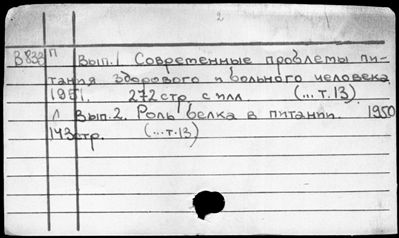 2
В 838 П Вып. 1 Современные проблемы пи-
тания здорового и больного человека
1951. 272 стр. с илл. (... т. 13)
Л Вып. 2. Роль белка в питании. 1950
143 стр. (... т. 13)